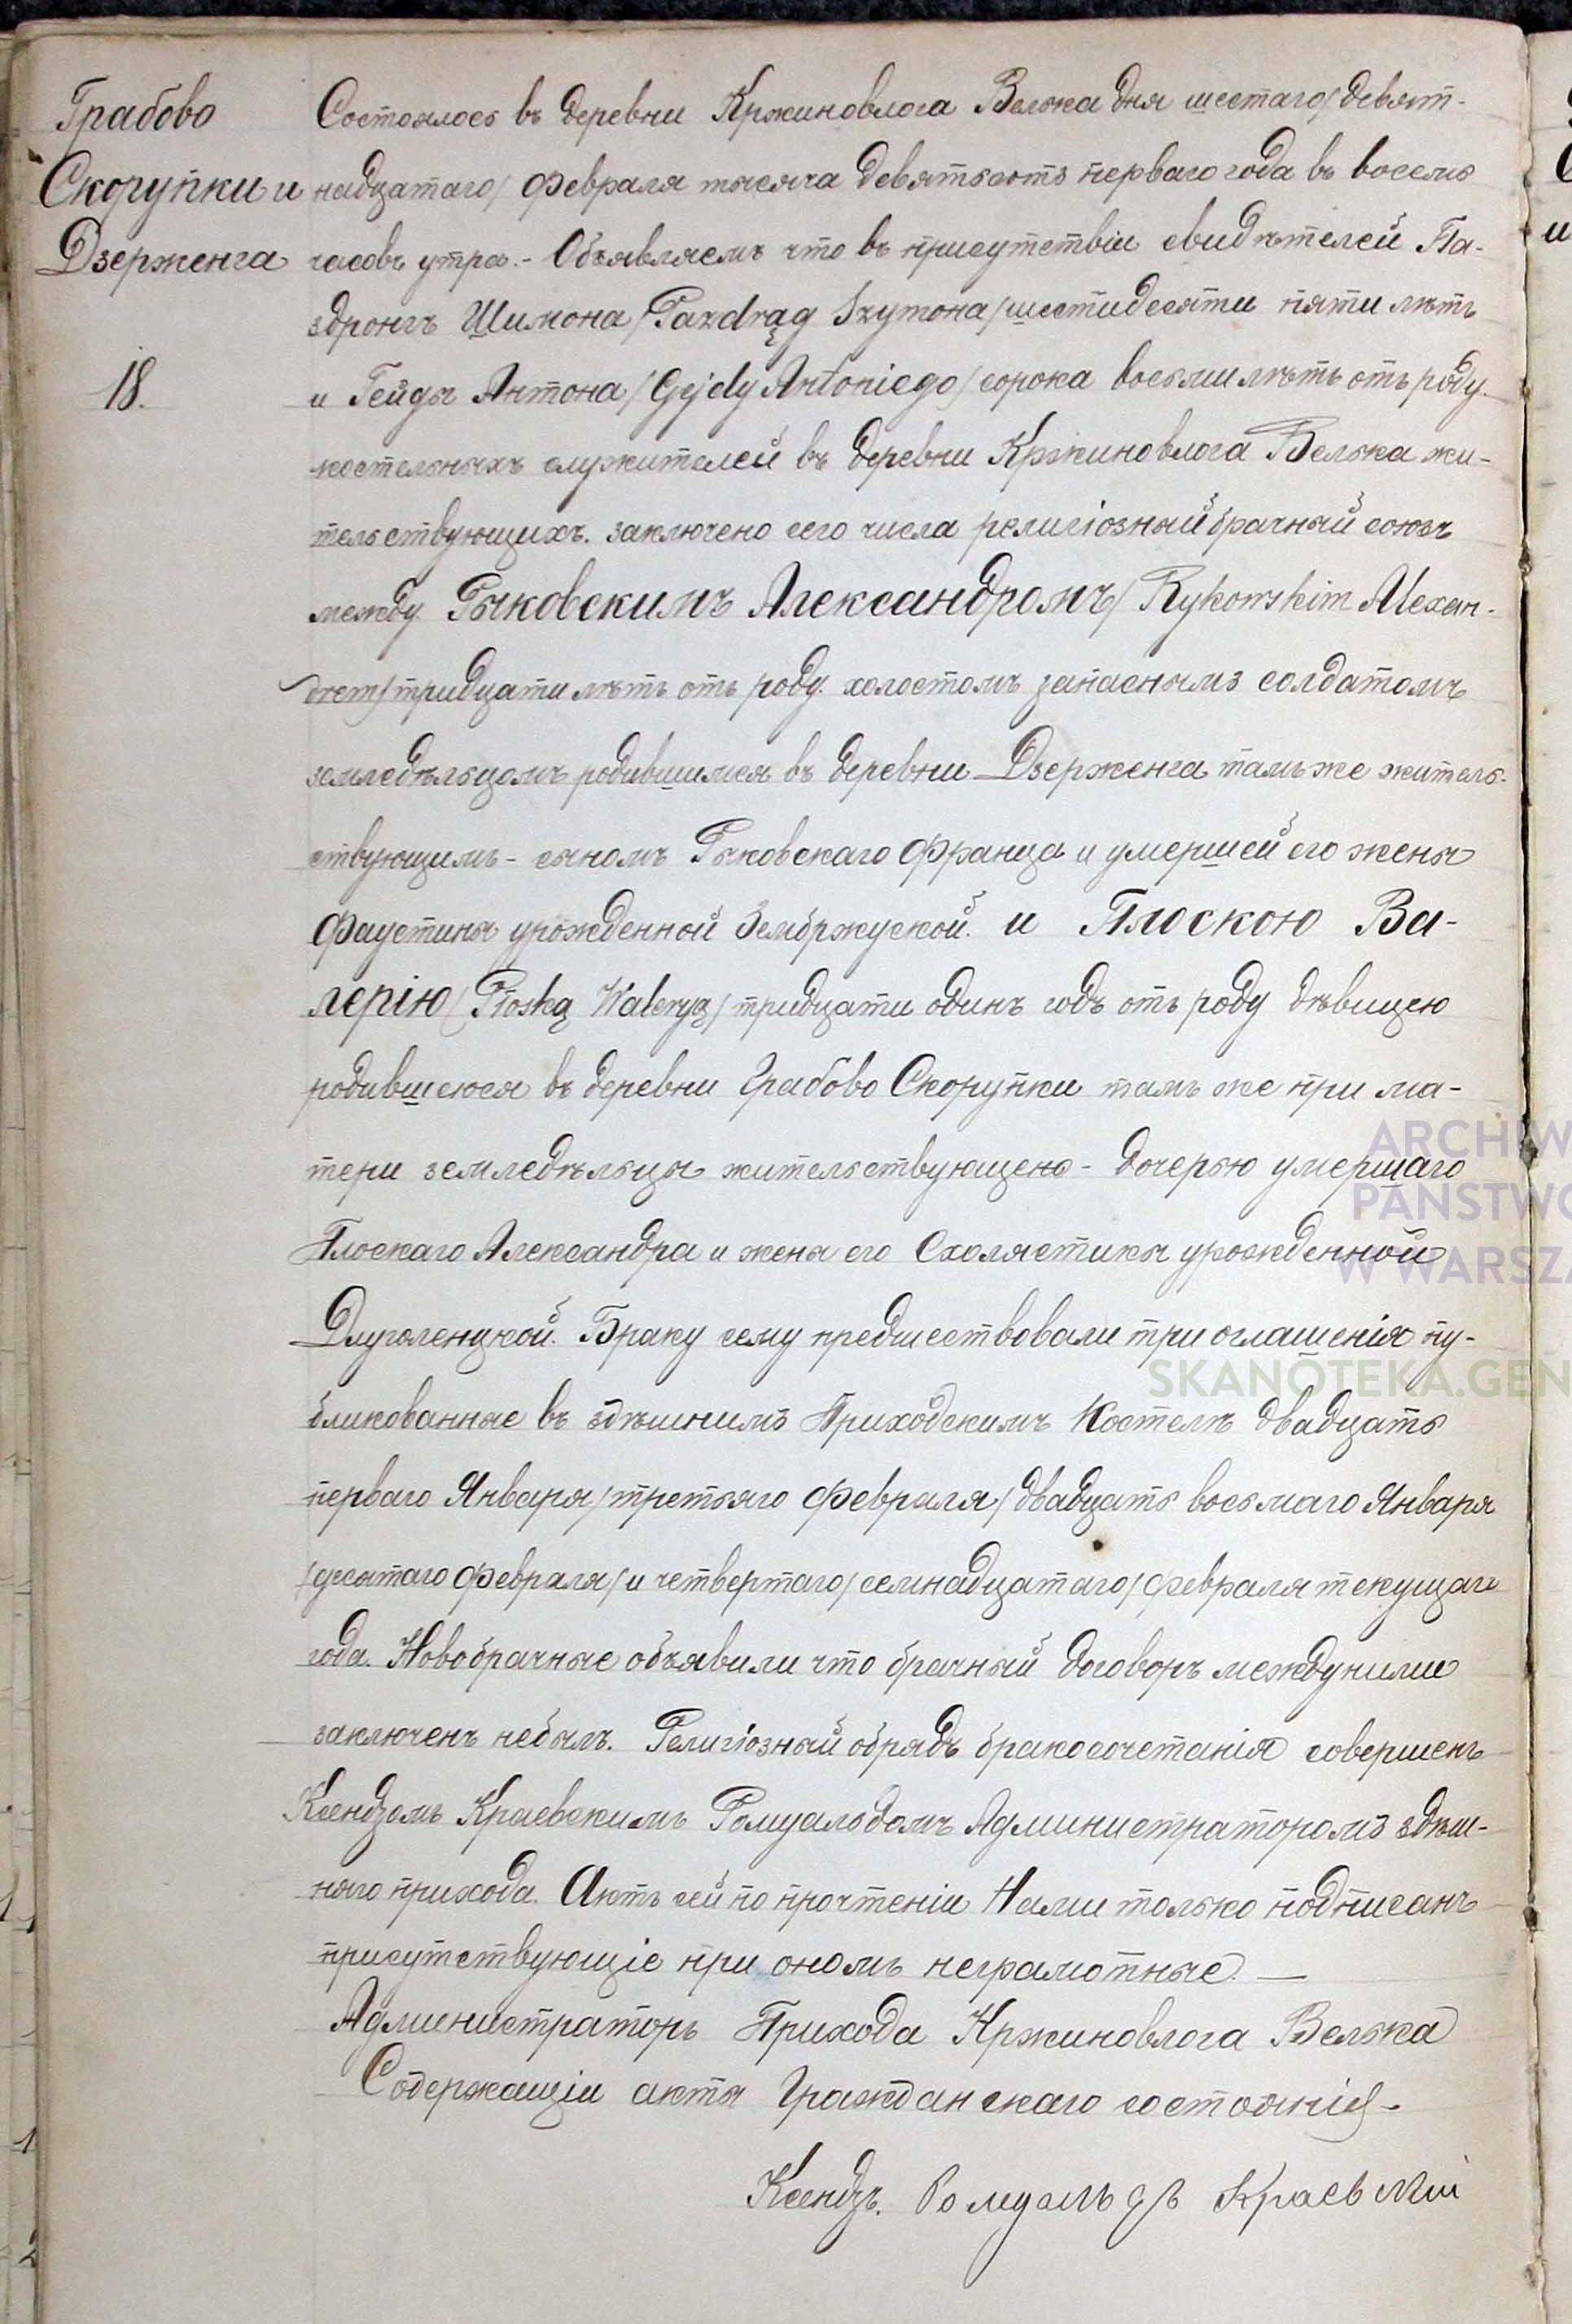 Грабово
Скорупки и
Дзерженга
18.
Состоялось въ деревни Кржиновлога Велька дня шестаго/девят-
надцатаго/ Февраля тысяча девятьсотъ перваго года въ восемь
часовъ утра.- Объявляемъ что въ присутствіи свидѣтелей Па-
здронгъ Шимона /Pazdrąg Szymona/ шестидесяти пяти лѣтъ
и Гейды Антона /Gejdy Antoniego/ сорока восьми лѣтъ отъ роду.
костельныхъ служителей въ деревни Кржиновлога Велька жи-
тельствующихъ. заключено сего числа религіозный брачный союзъ
между Рыковскимъ Александромъ/ Rykowskim Alexan-
drem/ тридцати лѣтъ отъ роду. холостомъ запаснымъ солдатомъ
земледѣльцомъ родившимся въ деревни Дзерженга тамъ же житель-
ствующимъ - сыномъ Рыковскаго Франца и умершей его жены
Фаустины урожденной Зембржуской. и Плоскою Ва-
лерію /Płoską Waleryą/ тридцати одинъ годъ отъ роду дѣвицею
родившеюся въ деревни Грабово Скорупки тамъ же при ма-
тери земледѣльцы жительствующею - дочерью умершаго
Плоскаго Александра и жены его Схолястики урожденной
Длуголенцкой. Браку сему предшествовали три оглашенія пу-
бликованные въ здѣшнимъ Приходскимъ Костелѣ двадцать
перваго Января /третьяго Февраля/ двадцать восьмаго Января
/десятаго Февраля/ и четвертаго /семнадцатаго/ Февраля текущаго
года. Новобрачные объявили что брачный договоръ между ними
заключенъ небылъ. Религіозный обрядъ бракосочетанія совершенъ
Ксендзомъ Краевскимъ Ромуальдомъ Администраторомъ здѣш-
няго прихода. Актъ сей по прочтеніи Нами только подписанъ
присутствующіе при ономъ неграмотные. —
Администраторъ Прихода Кржиновлога Велька
Содержащіи акты Гражданскаго состоянія -
Ксендзъ. Ромуальдъ Краевскій
ARCHIW
PAŃSTWO
W WARSZA
SKANOTEKA.GEN